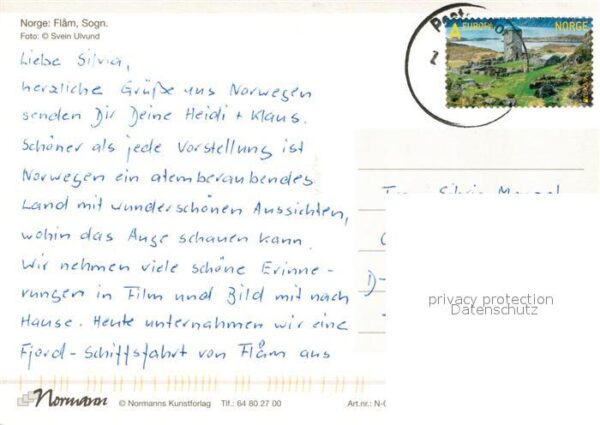 Norge: Flåm, Sogn.
Foto: © Svein Ulvund
A EUROPA NORGE
Liebe Silvia,
herzliche Grüße aus Norwegen
senden Dir Deine Heidi + Klaus.
Schöner als jede Vorstellung ist
Norwegen ein atemberaubendes
Land mit wunderschönen Aussichten,
wohin das Auge schauen kann.
Wir nehmen viele schöne Erinne-
rungen in Film und Bild mit nach
Hause. Heute unternahmen wir eine
Fjord-Schiffsfahrt von Flåm aus
Silvia
D-
privacy protection
Datenschutz
Normann © Normanns Kunstforlag Tlf.: 64 80 27 00 Art.nr.: N-